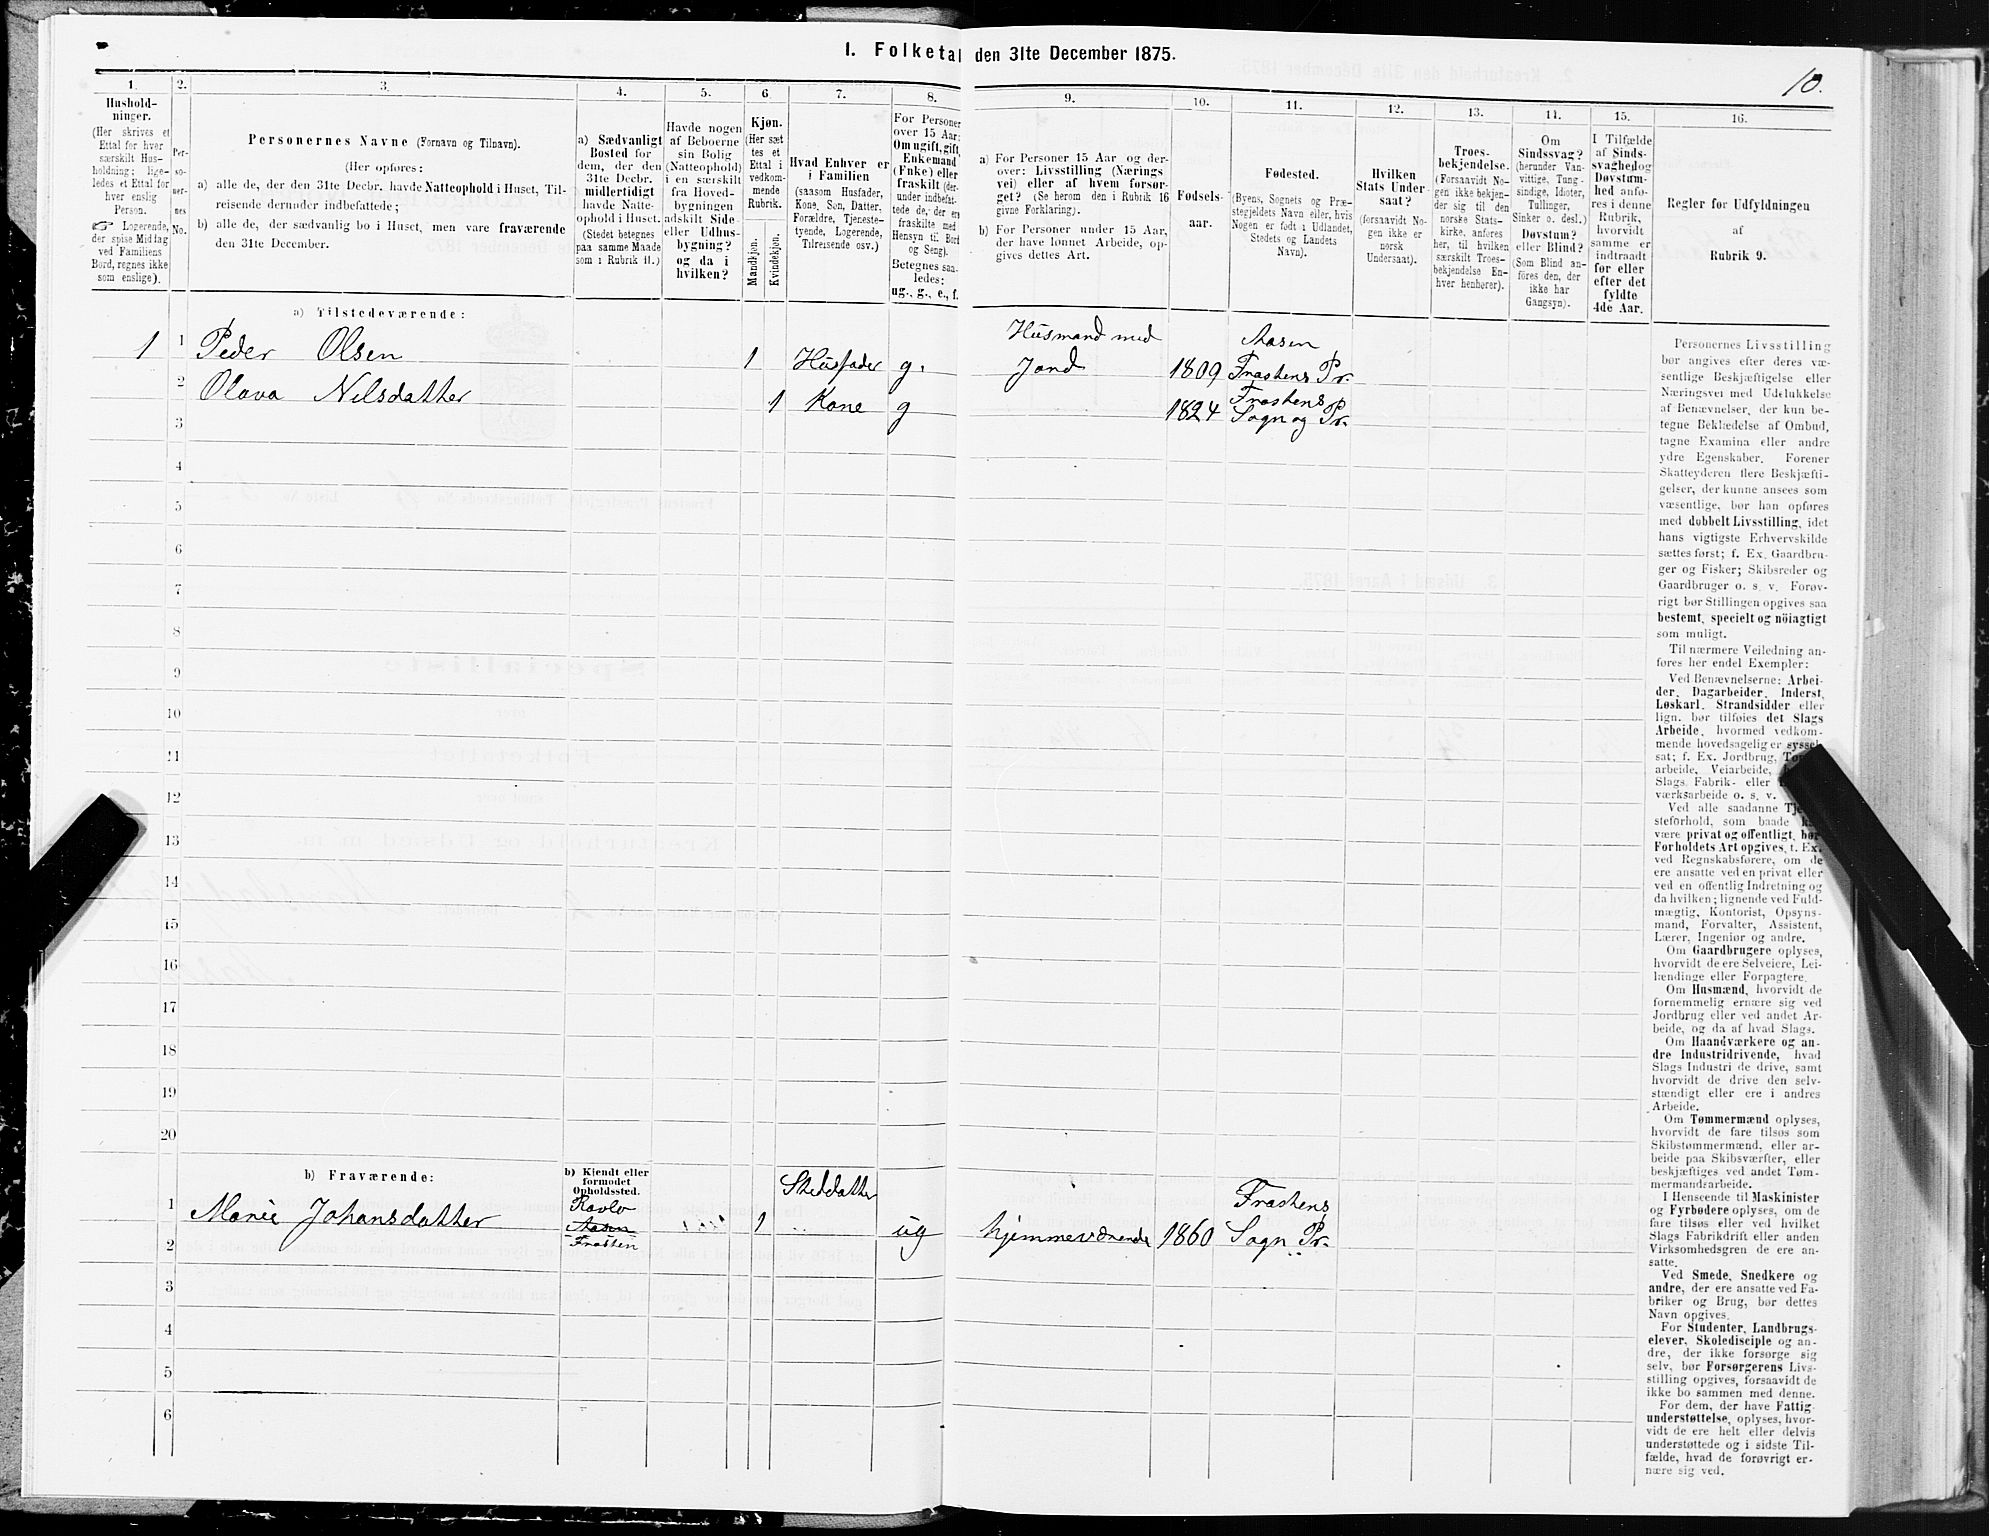 1. Folketal den 31te December 1875.
10.
1.
Hushold-
ninger.
(Her skrives et
Ettal for hver
særskilt Hus-
holdning; lige-
ledes et Ettal for
hver enslig
Person.
☞ Logerende,
der spise Middag
ved Familiens
Bord, regnes ikke
som enslige).
2.
Per-
so-
ner-
nes
No.
3.
Personernes Navne (Fornavn og Tilnavn).
(Her opføres:
a) alle de, der den 31te Decbr. havde Natteophold i Huset, Til-
reisende derunder indbefattede;
b) alle de, der sædvanlig bo i Huset, men vare fraværende
den 31te December.
4.
a) Sædvanligt
Bosted for
dem, der den
31te Decbr.
midlertidigt
havde Natte-
ophold i Huset.
(Stedet betegnes
paa samme Maade
som i Rubrik 11.)
5.
Havde nogen
af Beboerne
sin Bolig
(Natteophold)
i en særskilt
fra Hoved-
bygningen
adskilt Side-
eller Udhus-
bygning?
og da i
hvilken?
6.
Kjøn.
(Her sæt-
tes et
Ettal i
vedkom-
mende
Rubrik.
Mandkjøn.
Kvindekjøn.
7.
Hvad Enhver er
i Familien
(saasom Husfader,
Kone, Søn, Datter,
Forældre, Tjeneste-
tyende, Logerende,
Tilreisende osv.)
8.
For Personer
over 15 Aar:
Om ugift, gift,
Enkemand
(Enke) eller
fraskilt (der-
under indbefat-
tede de, der ere
fraskilte med
Hensyn til Bord
og Seng).
Betegnes saa-
ledes:
ug., g., e., f.
9.
a) For Personer 15 Aar og der-
over: Livsstilling (Nærings-
vei) eller af hvem forsør-
get? (Se herom den i Rubrik 16
givne Forklaring).
b) For Personer under 15 Aar,
der have lønnet Arbeide, op-
gives dettes Art.
10.
Fødsels-
aar.
11.
Fødested.
(Byens, Sognets og Præ-
stegjeldets Navn eller, hvis
Nogen er født i Udlandet,
Stedets og Landets
Navn).
12.
Hvilken
Stats Under-
saat?
(forsaavidt No-
gen ikke er
norsk
Undersaat).
13.
Troes-
bekjendelse.
(Forsaavidt No-
gen ikke bekjen-
der sig til den
norske Stats-
kirke, anføres
her, til hvilken
særskilt Troes-
bekjendelse En-
hver henhører).
14.
Om
Sindssvag?
(herunder Van-
vittige, Tung-
sindige, Idioter,
Tullinger,
Sinker o. desl.)
Døvstum?
eller Blind?
(Som Blind an-
føres den, der
ikke har
Gangsyn).
15.
I Tilfælde
af Sinds-
svaghed og
Døvstum-
hed anfø-
res i denne
Rubrik,
hvorvidt
samme er
indtraadt
før eller
efter det
fyldte
4de Aar.
16.
Regler for Udfyldningen
af
Rubrik 9.
a) Tilstedeværende:
1 1 Peder Olsen 1 Husfader g. Husmand med Jord 1809 Aasen Frostens Pr.
2 Olava Nilsdatter 1 Kone g 1824 Frostens Sogn og Pr.
3
4
5
6
7
8
9
10
11
12
13
14
15
16
17
18
19
20
b) Fraværende:
b) Kjendt eller
formodet
Opholdssted.
1 Marie Johansdatter Ravlo Aasen Frosten 1 Steddatter ug hjemmeværende 1860 Frostens Sogn Pr.
2
3
4
5
6
Personernes Livsstilling
bør angives efter deres væ-
sentlige Beskjæftigelse eller
Næringsvei med Udelukkelse
af Benævnelser, der kun be-
tegne Beklædelse af Ombud,
tagne Examina eller andre
ydre Egenskaber. Forener
Skatteyderen flere Beskjæfti-
gelser, der kunne ansees som
væsentlige, bør han opføres
med dobbelt Livsstilling, idet
hans vigtigste Erhvervskilde
sættes først; f. Ex. Gaardbru-
ger og Fisker; Skibsreder og
Gaardbruger o. s. v. Forøv-
rigt bør Stillingen opgives saa
bestemt, specielt og nöiagtigt
som muligt.
Til nærmere Veiledning an-
føres her endel Exempler:
Ved Benævnelserne: Arbei-
der, Dagarbeider, Inderst,
Løskarl, Strandsidder eller
lign. bør tilføies det Slags
Arbeide, hvormed vedkom-
mende hovedsagelig er syssel-
sat; f. Ex. Jordbrug,
arbeide, Veiarbeide,
Slags Fabrik- eller
værksarbeide o. s. v.
Ved alle saadanne
steforhold, som baade
være privat og offentligt, bør
Forholdets Art opgives, f. Ex.
ved Regnskabsførere, om de
ere ansatte ved en privat eller
ved en offentlig Indretning og
da hvilken; lignende ved Fuld-
mægtig, Kontorist, Opsyns-
mand, Forvalter, Assistent,
Lærer, Ingeniør og andre.
Om Gaardbrugere oplyses,
hvorvidt de ere Selveiere, Lei-
lændinge eller Forpagtere.
Om Husmænd, hvorvidt de
fornemmelig ernære sig ved
Jordbrug eller ved andet Ar-
beide, og da af hvad Slags.
Om Haandværkere og an-
dre Industridrivende, hvad
Slags Industri de drive, samt
hvorvidt de drive den selv-
stændigt eller ere i andres
Arbeide.
Om Tømmermænd oplyses,
hvorvidt de fare tilsøs som
Skibstømmermænd, eller ar-
beide paa Skibsværfter, eller
beskjæftiges ved andet Tøm-
mermandsarbeide.
I Henseende til Maskinister
og Fyrbødere oplyses, om de
fare tilsøs eller ved hvilket
Slags Fabrikdrift eller anden
Virksomhedsgren de ere an-
satte.
Ved Smede, Snedkere og
andre, der ere ansatte ved Fa-
briker og Brug, bør dettes
Navn opgives.
For Studenter, Landbrugs-
elever, Skoledisciple og an-
dre, der ikke forsørge sig
selv, bør Forsørgerens Livs-
stilling opgives, forsaavidt de
ikke bo sammen med denne.
For dem, der have Fattig-
understøttelse, oplyses, hvor-
vidt de ere helt eller delvis
understøttede og i sidste Til-
fælde, hvad de forøvrigt er-
nære sig ved.